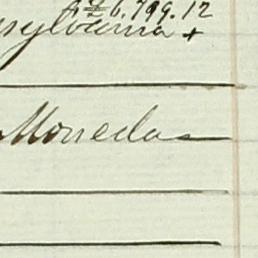 6.799.12
nsylvania +
Moneda